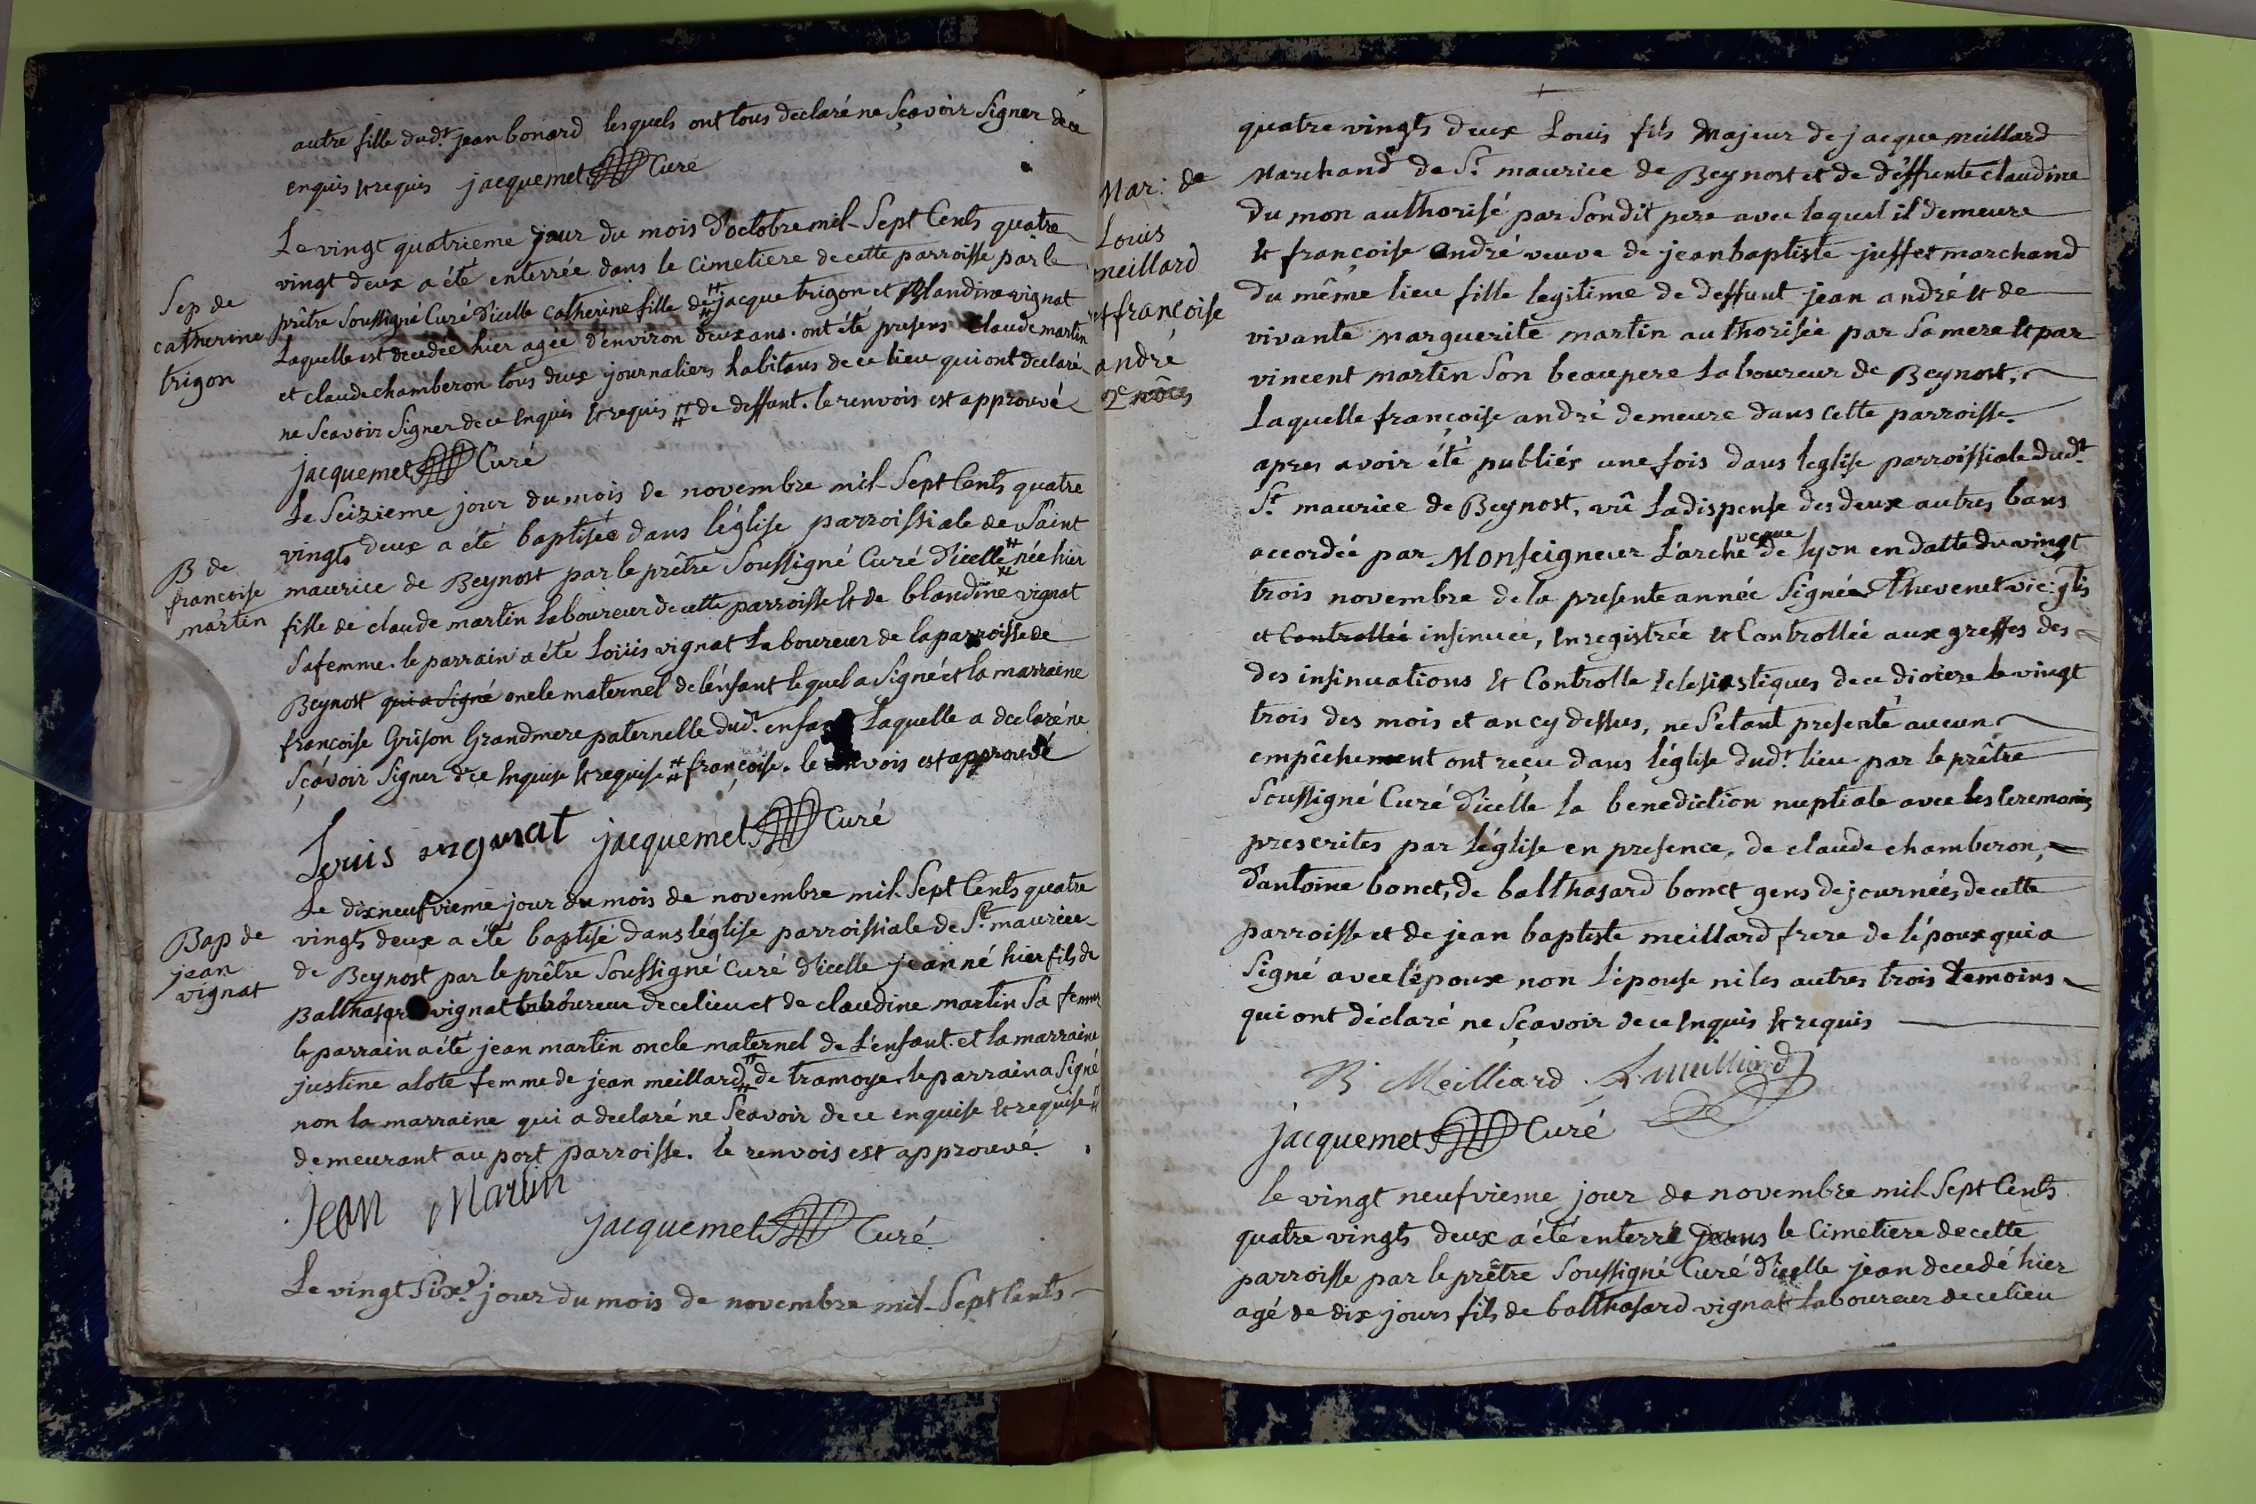 autre fille dud.t jean bonard lesquels ont tous declaré ne sçavoir signer de ce
enquis et requis jacquemet Curé
Le vingt quatrieme jour du mois d'octobre mil-sept Cents quatre
vingt deux a été enterrée dans le cimetiere de cette parroisse par le
Sep de
catherine
trigon
prêtre soussigné Curé d'icelle catherine fille de # jacque trigon et Blandine vignat
Laquelle est decedée hier agée d'environ deux ans. ont été presens Claude martin
et claude chamberon tous deux journaliers habitans de ce lieu qui ont declaré
ne sçavoir signer de ce enquis et requis # de deffunt. le renvois est approuvé
jacquemet Curé
Le seizieme jour du mois de novembre mil-sept Cents quatre
vingts deux a été baptisée dans l'église parroissiale de saint
B de
francoise
martin
maurice de Beynost par le prêtre soussigné Curé d'icelle # née hier
fille de claude martin Laboureur de cette parroisse et de blandine vignat
sa femme. le parrain a été Louis vignat Laboureur de la parroisse de
Beynost qui a signé oncle maternel de l'enfant lequel a signé et la marraine
françoise Grison Grandmere paternelle dud.t enfant Laquelle a declaré ne
sçavoir signer de ce enquise et requise # françoise. le renvois est approuvé
Louis vignat jacquemet Curé
Le dixneufvieme jour du mois de novembre mil-sept Cents quatre
vingts deux a été baptisé dans l'église parroissiale de St. maurice
Bap de
jean
vignat
de Beynost par le prêtre soussigné Curé d'icelle jean né hier fils de
Balthasard vignat Laboureur de ce lieu et de claudine martin sa femme
le parrain a été jean martin oncle maternel de L'enfant. et la marraine
justine alote femme de jean meillard # de tramoye. le parrain a signé
non la marraine qui a declaré ne sçavoir de ce enquise et requise #
demeurant au port parroisse. le renvois est approuvé.
Jean Martin
jacquemet Curé
Le vingt six.e jour du mois de novembre mil-sept Cents
Mar: de
Louis
meillard
et françoise
andré
2e nôces
quatre vingts deux Louis fils majeur de jacque meillard
Marchand de St. maurice de Beynost et de déffunte claudine
du mon authorisé par son dit pere avec lequel il demeure
et françoise andré veuve de jean baptiste juffet marchand
du même lieu fille legitime de deffunt jean andré et de
vivante marguerite martin authorisée par sa mere et par
vincent martin son beaupere Laboureur de Beynost,
Laquelle françoise andré demeure dans cette parroisse.
apres avoir été publiés une fois dans leglise parroissiale dud.t
St. maurice de Beynost, vû La dispense des deux autres bans
accordée par Monseigneur L'archeveque de lyon en datte du vingt
trois novembre de la presente année signée Thevenet vic: gts
et Controllée insinuée, enregistrée et Controllée aux greffes des
des insinuations et Controlle eclesiastiques de ce diocese le vingt
trois des mois et an cy dessus, ne s'etant presenté aucun
empêchement ont reçu dans l'église dud.t lieu par le prêtre
soussigné Curé d'icelle la benediction nuptiale avec les ceremonies
prescrites par l'église en presence, de claude chamberon,
d'antoine bonet, de balthasard bonet gens de journées, de cette
parroisse et de jean baptiste meillard frere de l'époux qui a
signé avec l'époux non l'épouse ni les autres trois temoins
qui ont déclaré ne sçavoir de ce enquis et requis
B. Meilliard L. meilliard
jacquemet Curé
le vingt neufvieme jour de novembre mil-sept Cents
quatre vingts deux a été enterré dans le Cimetiere de cette
parroisse par le prêtre soussigné Curé d'icelle jean decedé hier
agé de dix jours fils de balthasard vignat Laboureur de ce lieu